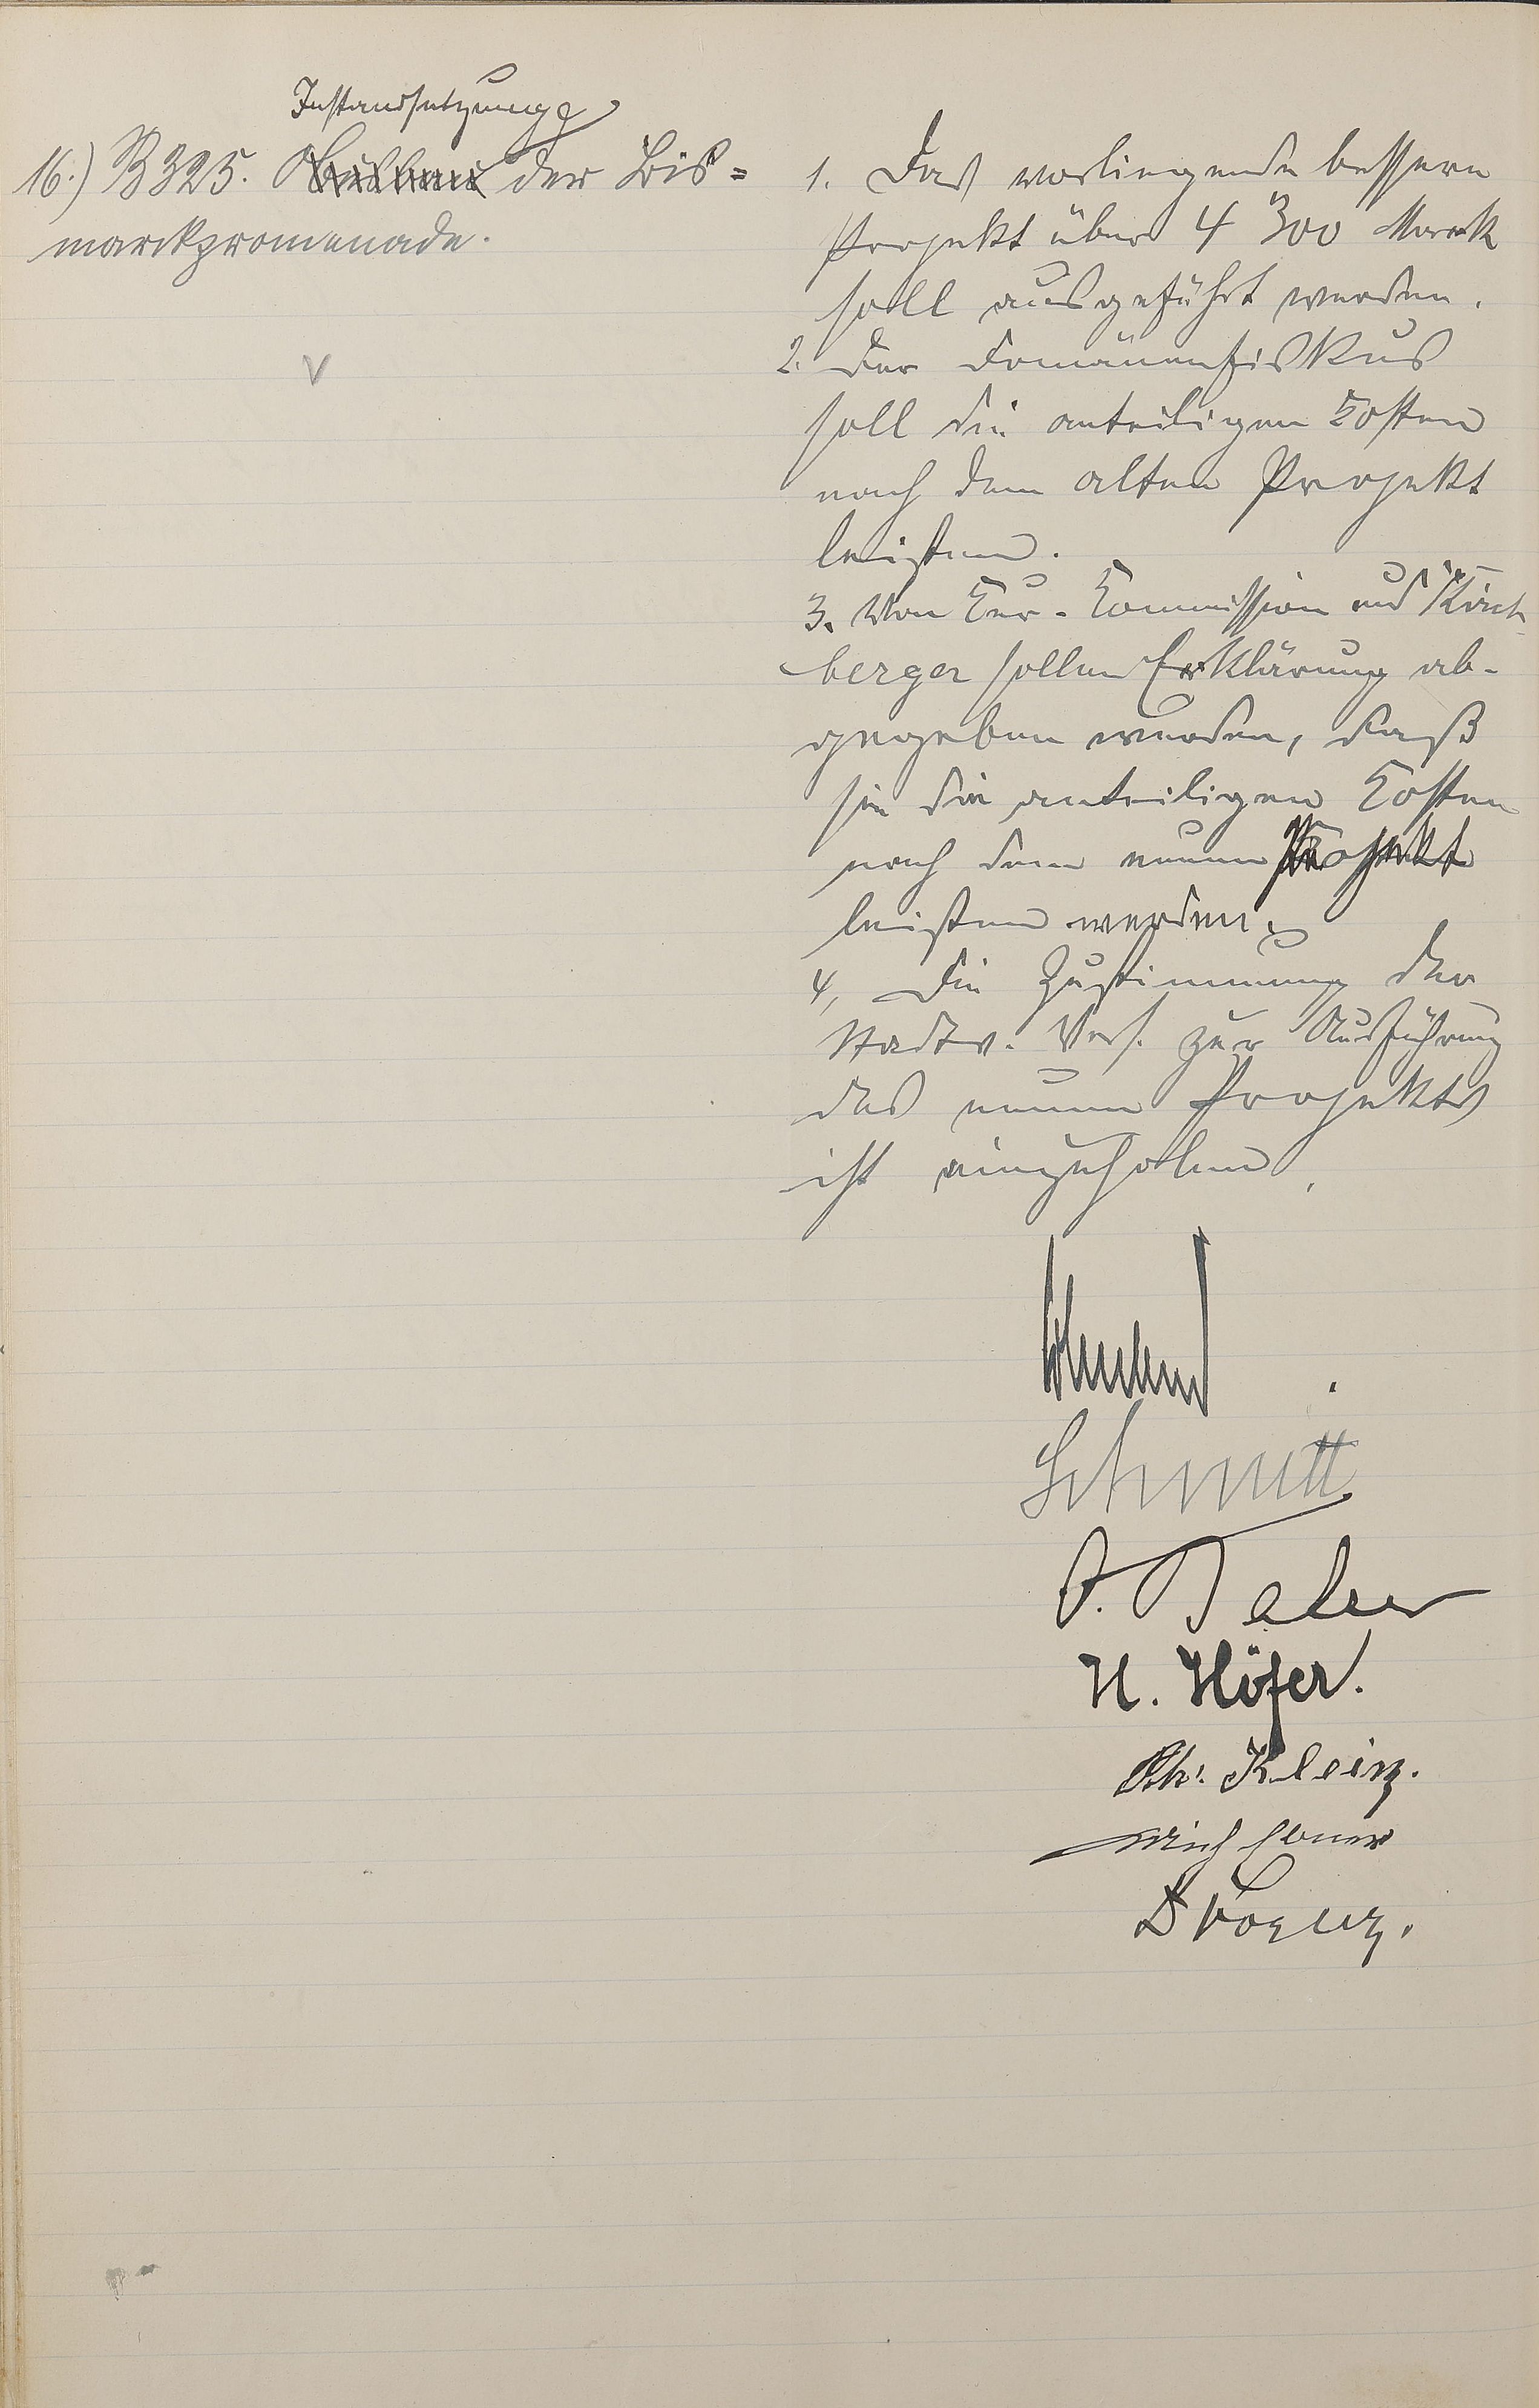 Instandsetzung
16.) B 325. Ausbau der Bis=
marckpromenade.
V
1. Das vorliegende bessere
Projekt über 4 300 Mark
soll ausgeführt werden.
2. Der Domänenfiskus
soll die anteiligen Kosten
nach dem alten Projekt
leisten.
3. Von Kur-Kommission und Kirch
berger sollen Erklärung ab-
gegeben werden, daß
sie die anteiligen Kosten
nach dem neuen Projekt
leisten werden.
4, Die Zustimmung der
Stadtv. Vers. zur Ausführung
des neuen Projekts
ist einzuholen.
Schmitt
H. Höfer.
Ph. Klein.